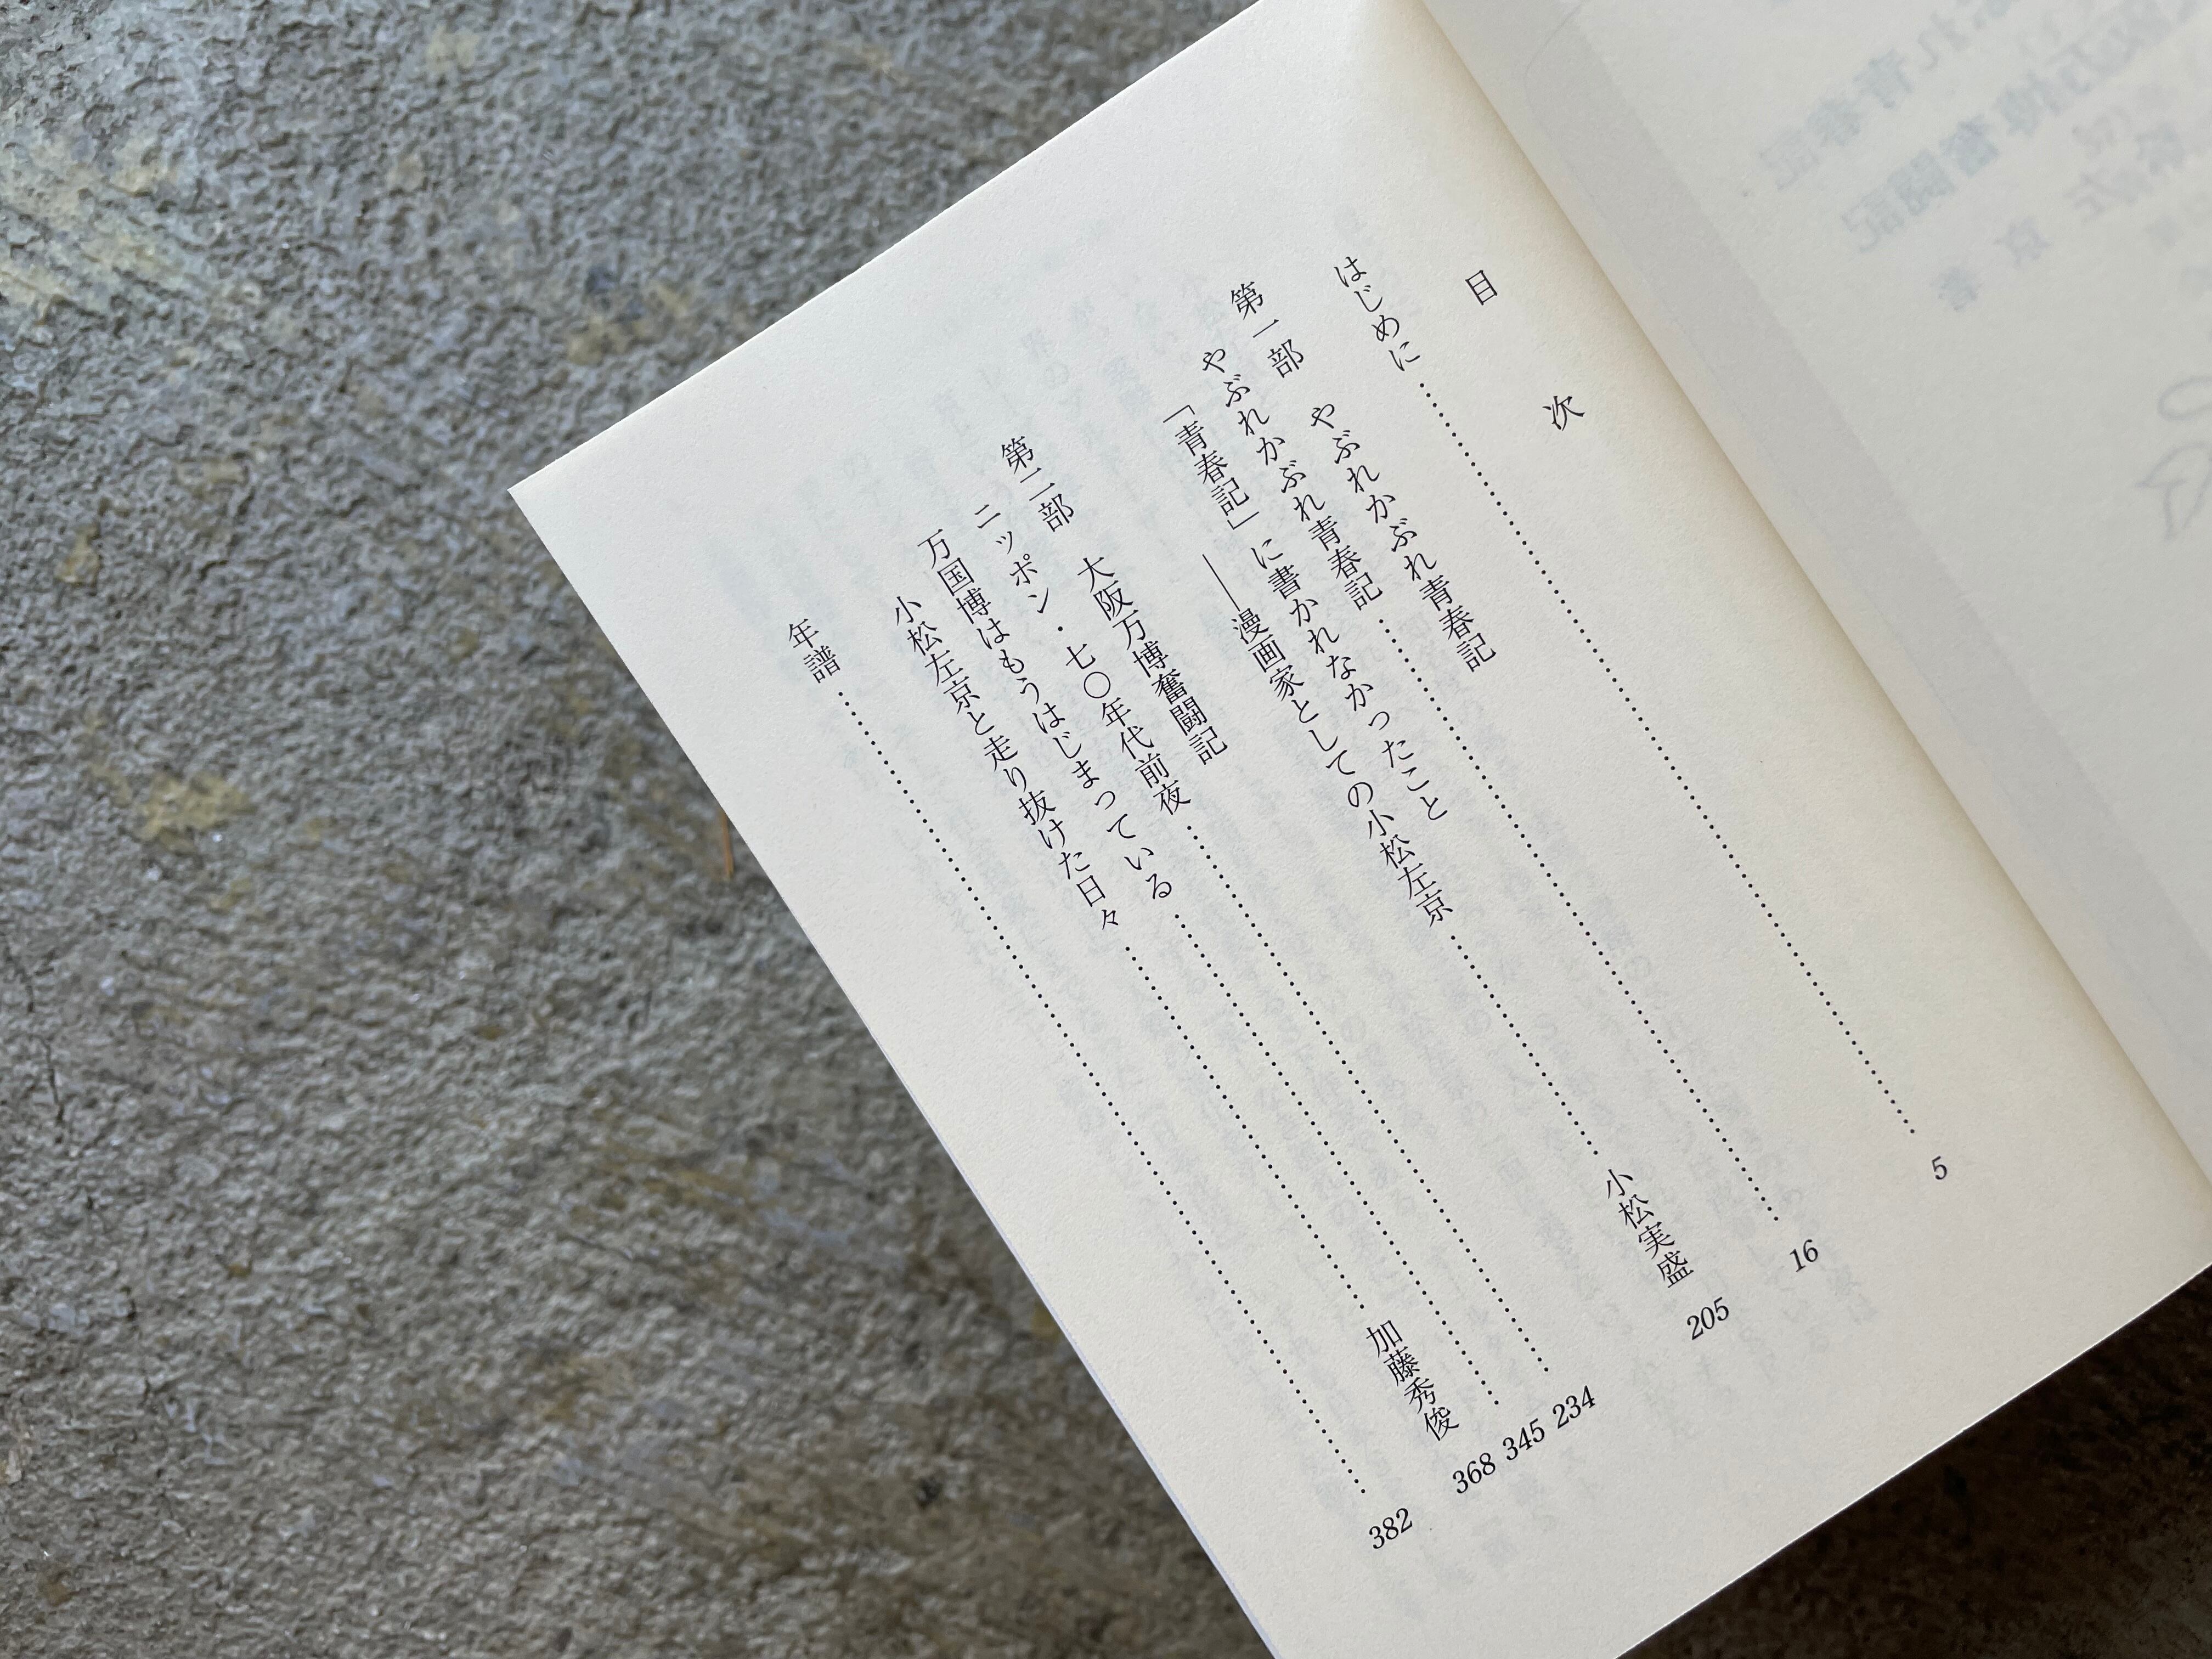 目次
はじめに……………………5
第一部 やぶれかぶれ青春記
やぶれかぶれ青春記……………………16
「青春記」に書かれなかったこと
――漫画家としての小松左京……………………小松実盛 205
第二部 大阪万博奮闘記
ニッポン・七〇年代前夜……………………234
万国博はもうはじまっている……………………345
小松左京と走り抜けた日々……………………加藤秀俊 368
年譜……………………382